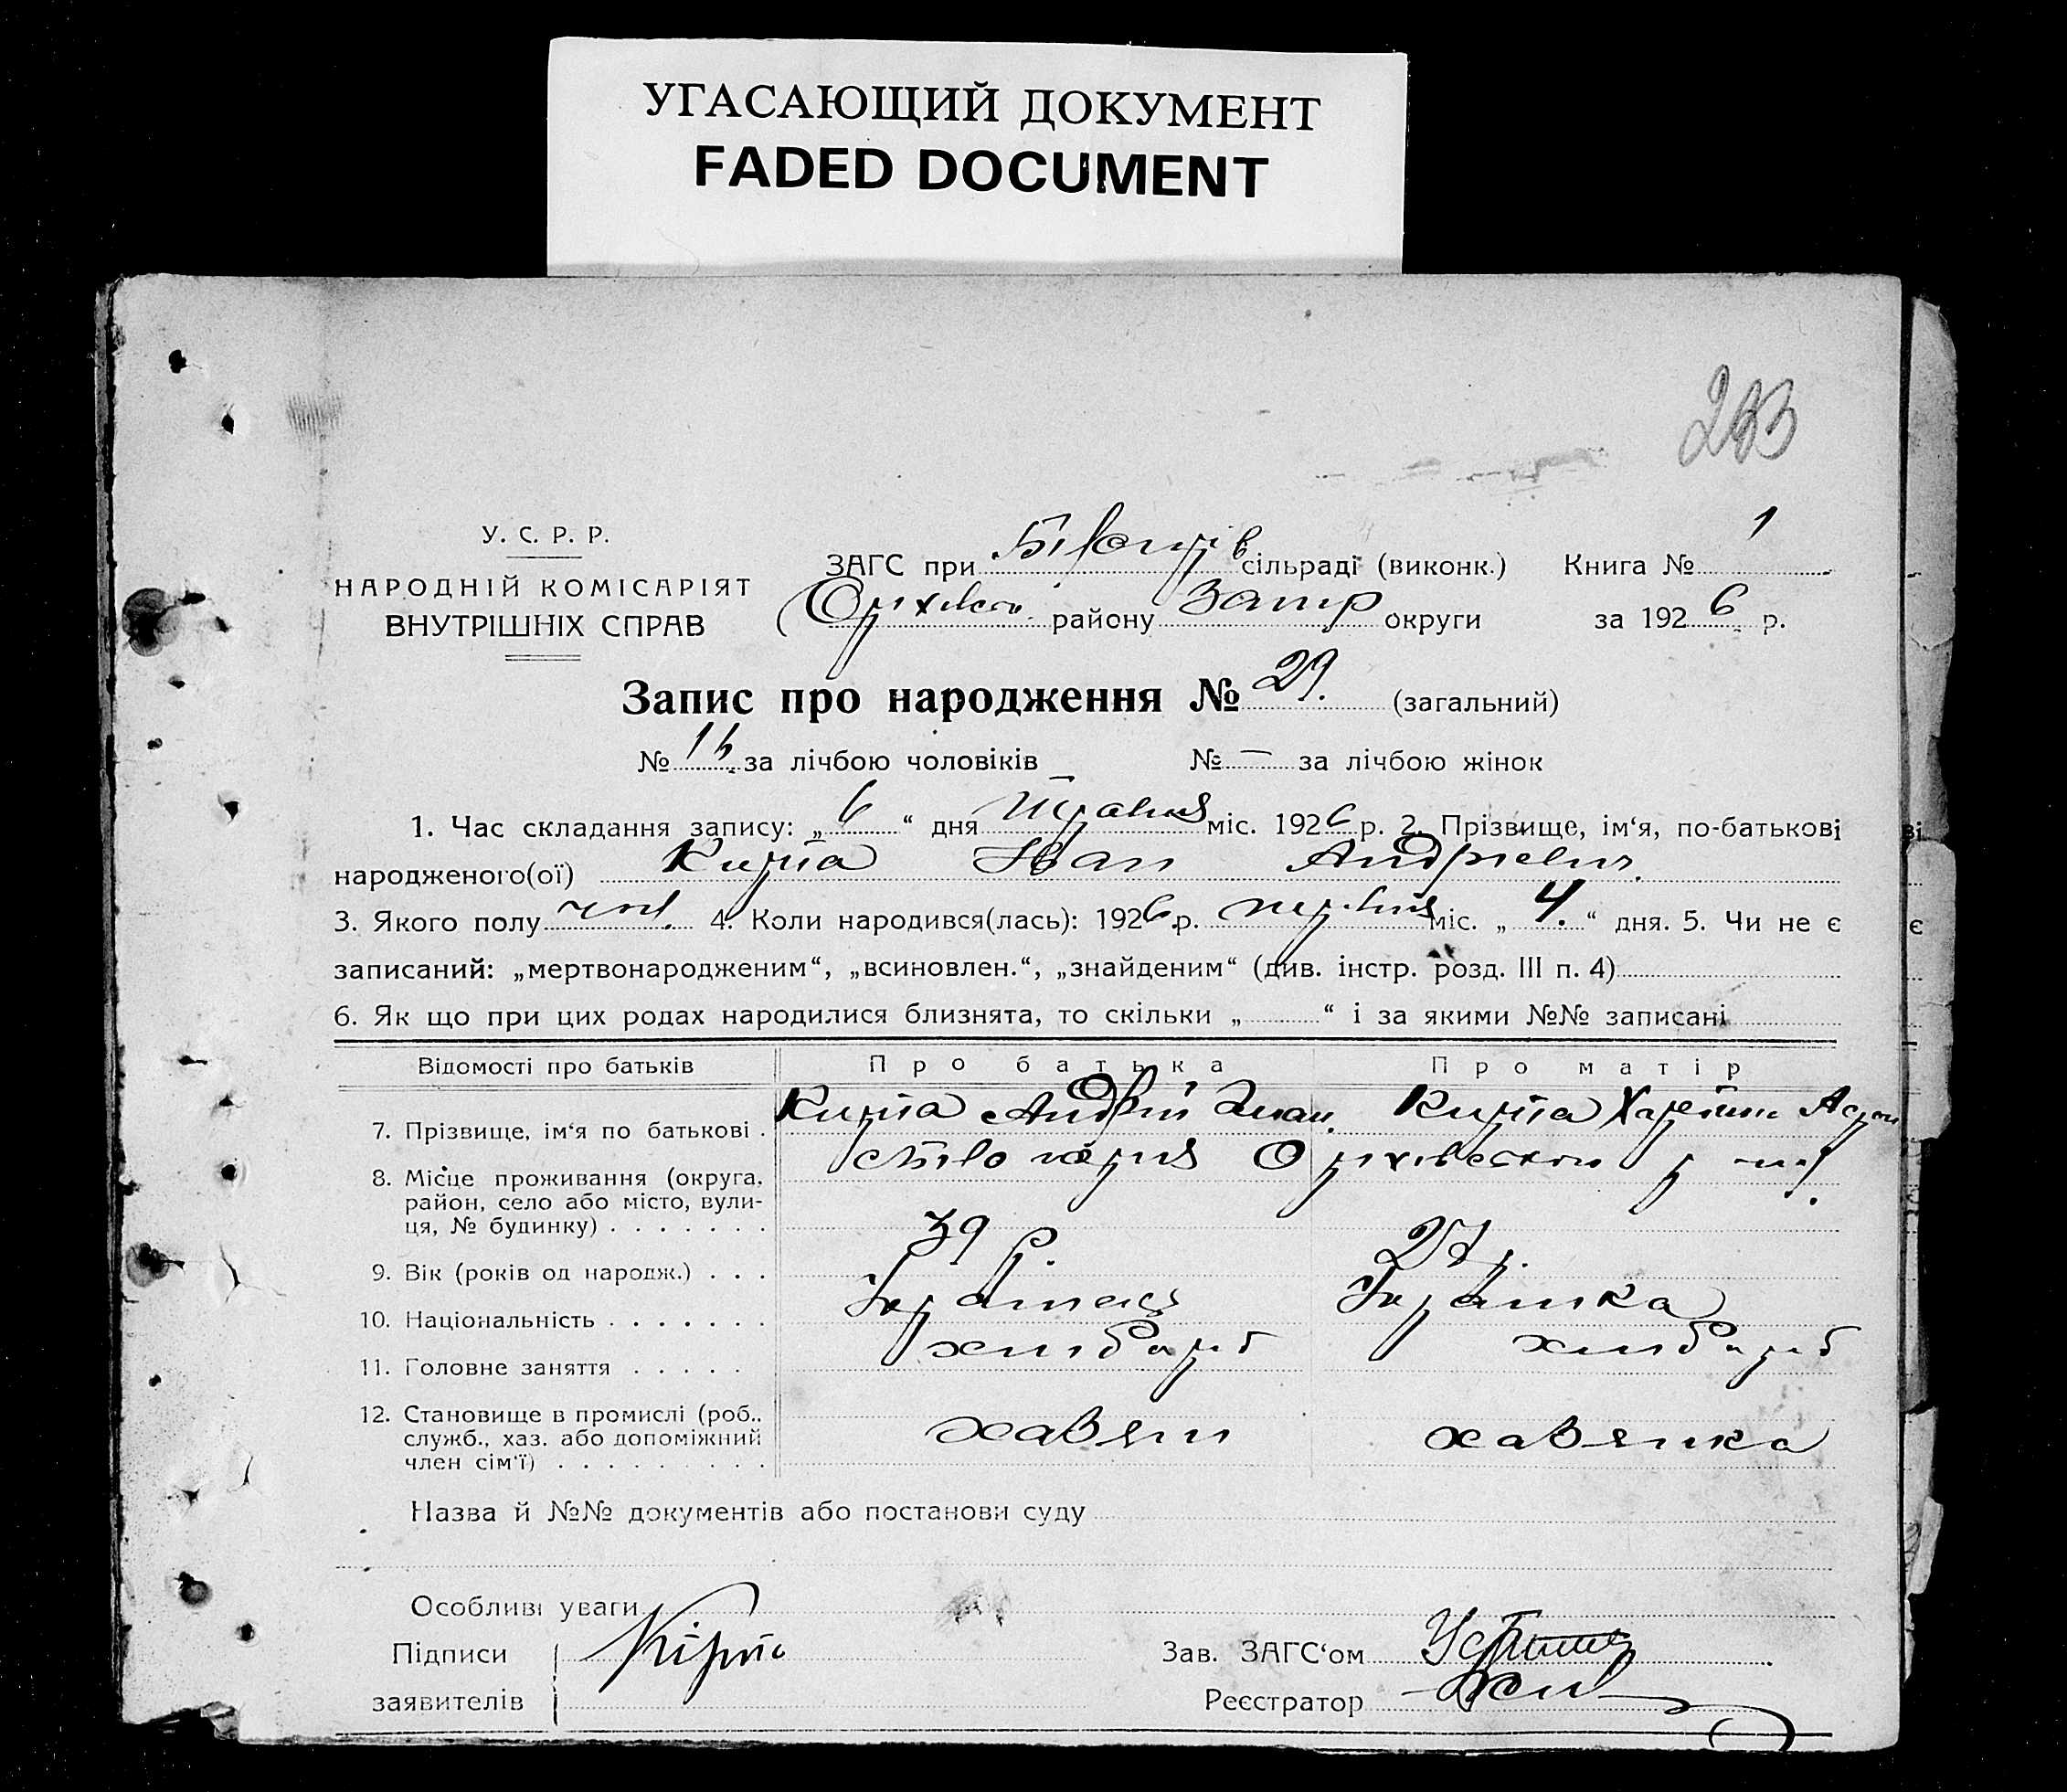 УГАСАЮЩИЙ ДОКУМЕНТ
FADED DOCUMENT
У. С. Р. Р.
НАРОДНІЙ КОМІСАРІЯТ
ВНУТРІШНІХ СПРАВ
ЗАГС при сільраді (виконк.) Книга № 1
району Запр округи за 1926 р.
Запис про народження № 29. (загальний)
№ за лічбою чоловіків № — за лічбою жінок
1. Час складання запису: „ 6 “ дня Травня міс. 1926 р. 2. Прізвище, ім‘я, по-батькові
народженого(ої) Кирпа Іван Андрієвич.
3. Якого полу чол. 4. Коли народився(лась): 1926 р. червня міс. „ 4. “ дня. 5. Чи не є
записаний: „мертвонародженим“, „всиновлен.“, „знайденим“ (див. інстр. розд. III п. 4)
6. Як що при цих родах народилися близнята, то скільки „ “ і за якими №№ записані
Відомості про батьків Про батька Про матір
7. Прізвище, ім‘я по батькові . Кирпа Андрій Иван. Кирпа
8. Місце проживання (округа, район, село або місто, вулиця, № будинку) . . . . . . . Оріхівського
9. Вік (років од народж.) . . . 39 р. 27 р.
10. Національність . . . . . . . Українець Українка
11. Головне заняття . . . . . хліборіб хліборіб
12. Становище в промислі (роб., служб., хаз. або допоміжний член сім‘ї) . . . . . . . . . хазяин хазяйка
Назва й №№ документів або постанови суду
Особливі уваги
Підписи
заявителів
Кірпа
Зав. ЗАГС‘ом
Реєстратор